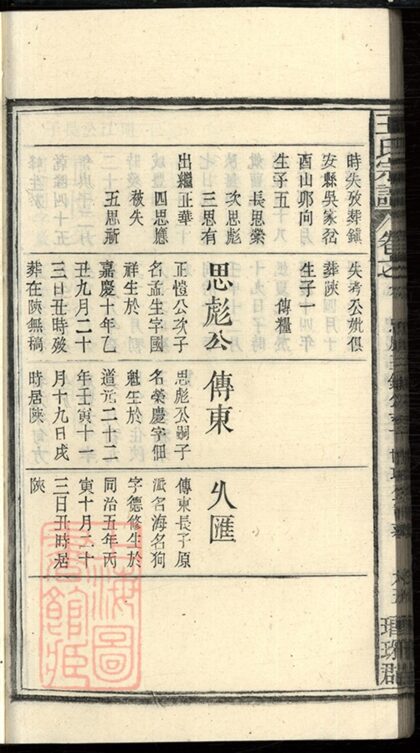 王氏宗譜
卷之
琅琊郡
時失攷葬鎮
安縣吳家岔
酉山夘向
生子五
長思榮
次思彪
三思有
出繼正華
四思應
被失
五思新
失考公妣俱
葬陝
生子一
傳糧
思彪公
正愷公次子
名孟生字國
祥生於
嘉慶十年乙
丑九月二十
三日丑時歿
葬在陝無稿
傳東
思彪公嗣子
名榮慶字佃
魁生於
道光二十二
年壬寅十二
月十九日戌
時居陝
久匯
傳東長子原
派名海名狗
字德修生於
同治五年丙
寅十月二十
三日丑時居
陝
上海圖書館藏